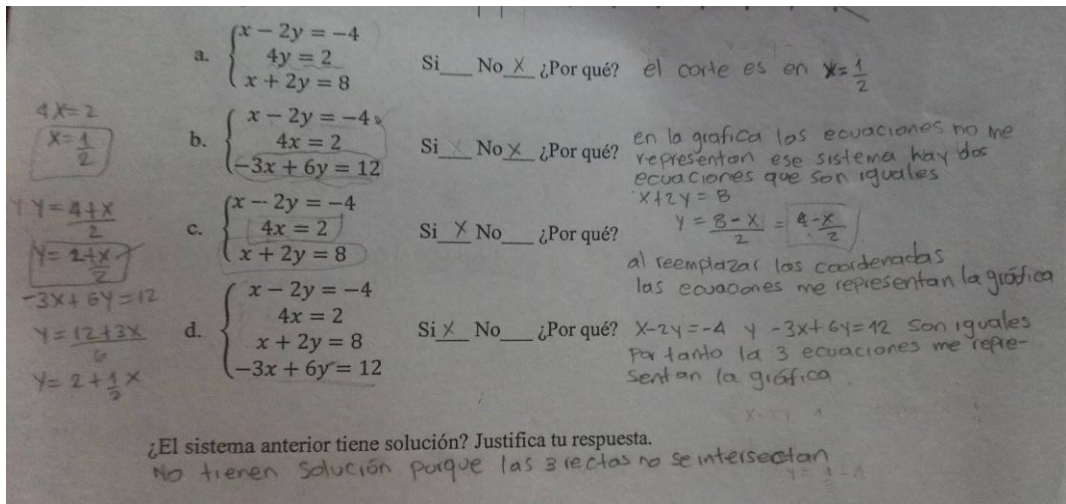 a. x − 2y = −4
4y = 2
x + 2y = 8
Si___ No X ¿Por qué? el corte es en x = 1/2
4x = 2
x = 1/2
b. x − 2y = −4
4x = 2
−3x + 6y = 12
Si X No X ¿Por qué? en la grafica las ecuaciones no me
representan ese sistema hay dos
ecuaciones que son iguales
y = 4 + x / 2
y = 2 + x / 2
c. x − 2y = −4
4x = 2
x + 2y = 8
Si X No___ ¿Por qué?
x + 2y = 8
y = 8 − x / 2 = 4 − x / 2
al reemplazar las coordenadas
las ecuaciones me representan la gráfica
−3x + 6y = 12
y = 12 + 3x / 6
y = 2 + 1/2 x
d. x − 2y = −4
4x = 2
x + 2y = 8
−3x + 6y = 12
Si X No___ ¿Por qué? x − 2y = −4 y −3x + 6y = 12 son iguales
por tanto la 3 ecuaciones me repre-
sentan la gráfica
¿El sistema anterior tiene solución? Justifica tu respuesta.
No tienen solución porque las 3 rectas no se intersectan